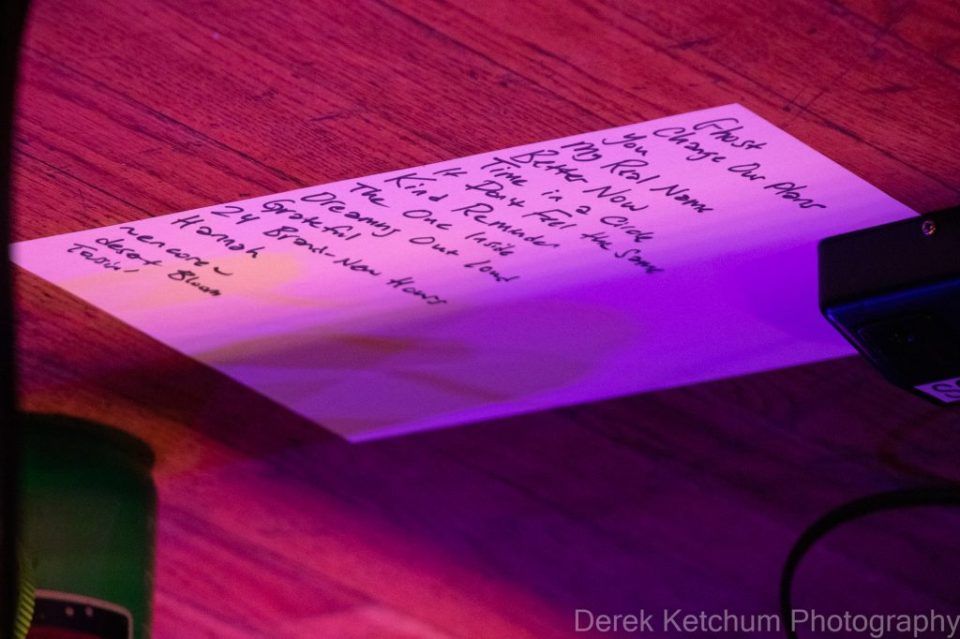 Ghost
Change Our Plans
You
My Real Name
Better Now
Time in a Circle
It Don't Feel the Same
Kind Reminder
The One Inside
Dreaming Out Loud
Grateful
24 Brand-New Hours
Hannah
~encore~
desert Bloom
Derek Ketchum Photography